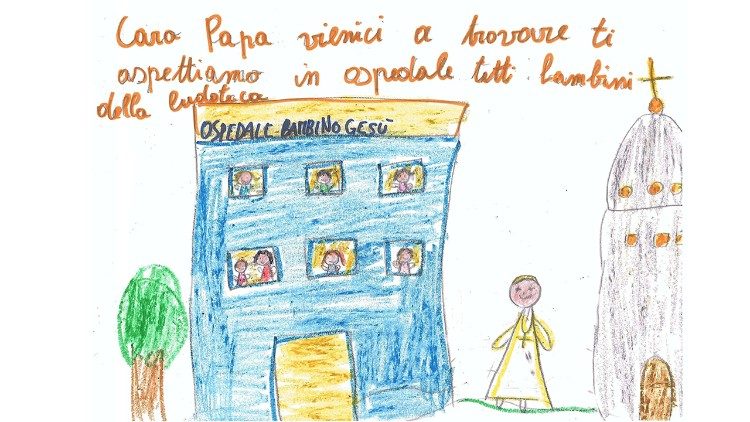 Caro Papa vienici a trovare ti
aspettiamo in ospedale tutti bambini
della ludoteca
OSPEDALE-BAMBINO GESÙ